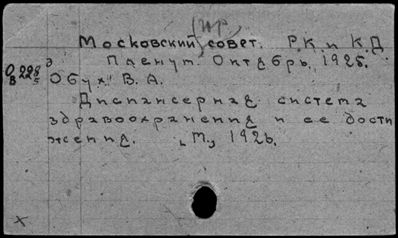 Московский совет. Р.К и К.Д
Пленум. Октябрь, 1925.
Обух В. А.
Диспансерная система
здравоохранения и ее дости
жения. М., 1926.